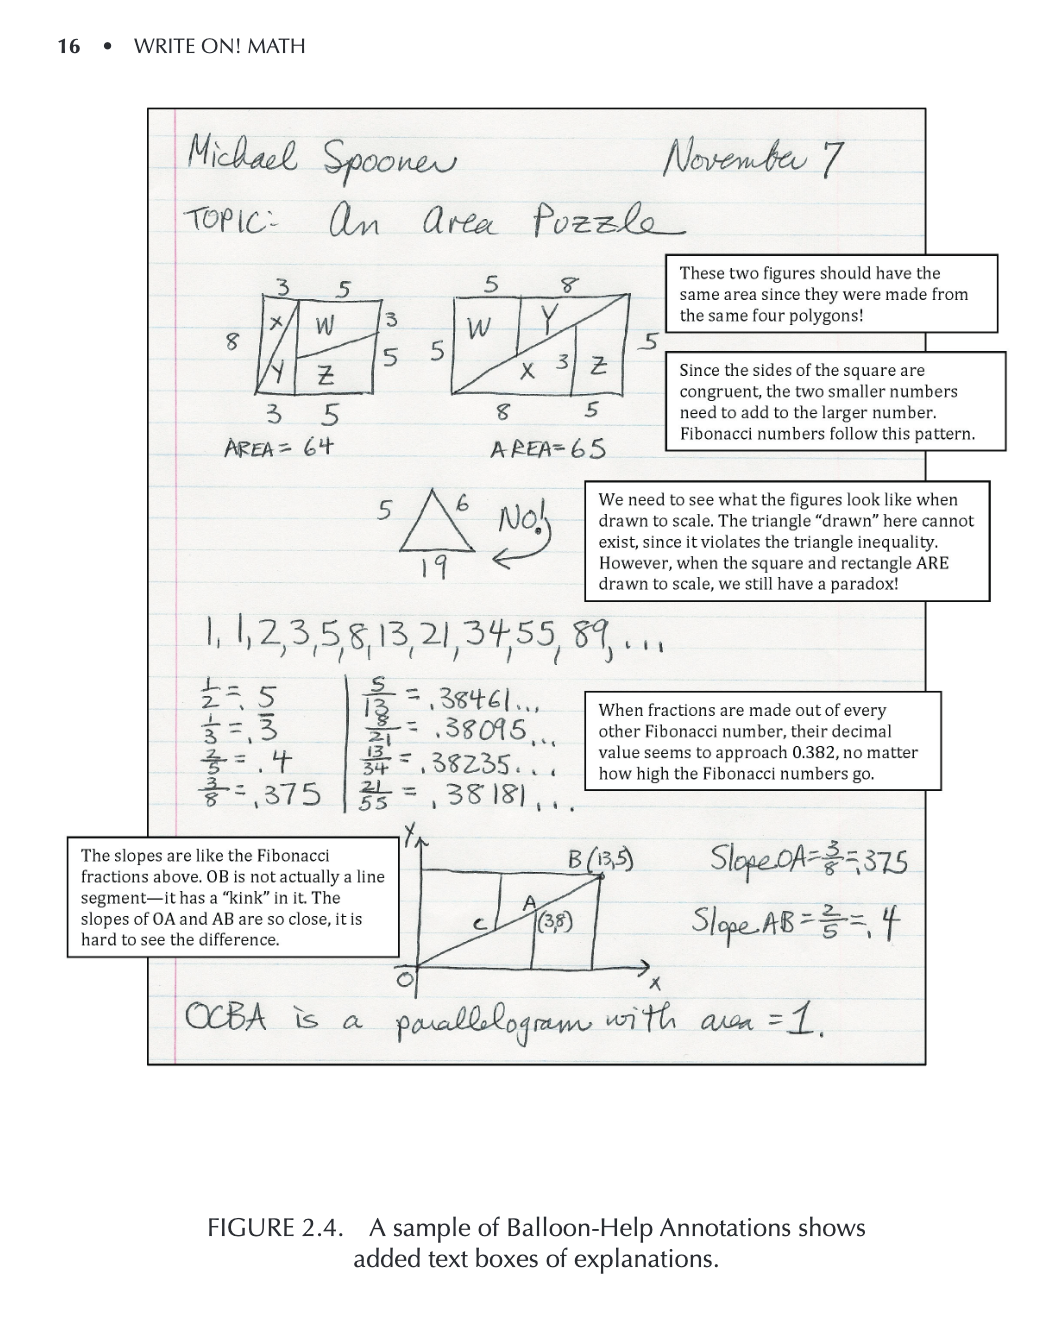 16 • WRITE ON! MATH
Michael Spooner November 7
TOPIC: An Area Puzzle
These two figures should have the
same area since they were made from
the same four polygons!
3 5
8 X W 3
Y Z 5
3 5
AREA = 64
5 8
5 W Y 5
X 3 Z
8 5
AREA=65
Since the sides of the square are
congruent, the two smaller numbers
need to add to the larger number.
Fibonacci numbers follow this pattern.
5 6 No!
19
We need to see what the figures look like when
drawn to scale. The triangle “drawn” here cannot
exist, since it violates the triangle inequality.
However, when the square and rectangle ARE
drawn to scale, we still have a paradox!
1, 1, 2, 3, 5, 8, 13, 21, 34, 55, 89, ...
1/2 = .5
1/3 = .3̅
2/5 = .4
3/8 = .375
5/13 = .38461...
8/21 = .38095...
13/34 = .38235...
21/55 = .38181...
When fractions are made out of every
other Fibonacci number, their decimal
value seems to approach 0.382, no matter
how high the Fibonacci numbers go.
The slopes are like the Fibonacci
fractions above. OB is not actually a line
segment—it has a “kink” in it. The
slopes of OA and AB are so close, it is
hard to see the difference.
Y
B (13,5)
A
C (3,8)
O X
Slope OA = 3/8 = .375
Slope AB = 2/5 = .4
OCBA is a parallelogram with area = 1.
FIGURE 2.4. A sample of Balloon-Help Annotations shows
added text boxes of explanations.